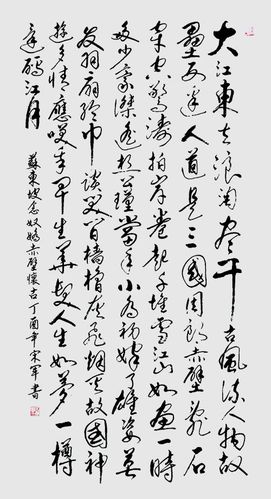 大江東去浪淘盡千古風流人物故
壘西邊人道是三國周郎赤壁亂石
穿空驚濤拍岸卷起千堆雪江山如畫一時
多少豪傑遙想公瑾當年小喬初嫁了雄姿英
發羽扇綸巾談笑間檣櫓灰飛煙滅故國神
遊多情應笑我早生華髮人生如夢一樽
還酹江月
蘇東坡念奴嬌赤壁懷古丁酉年宋軍書